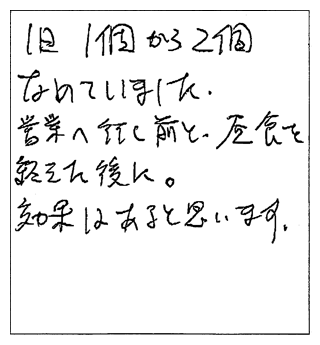 1日 1個から2個
なめていました.
営業へ行く前と、昼食を
終えた後に。
効果はあると思います.